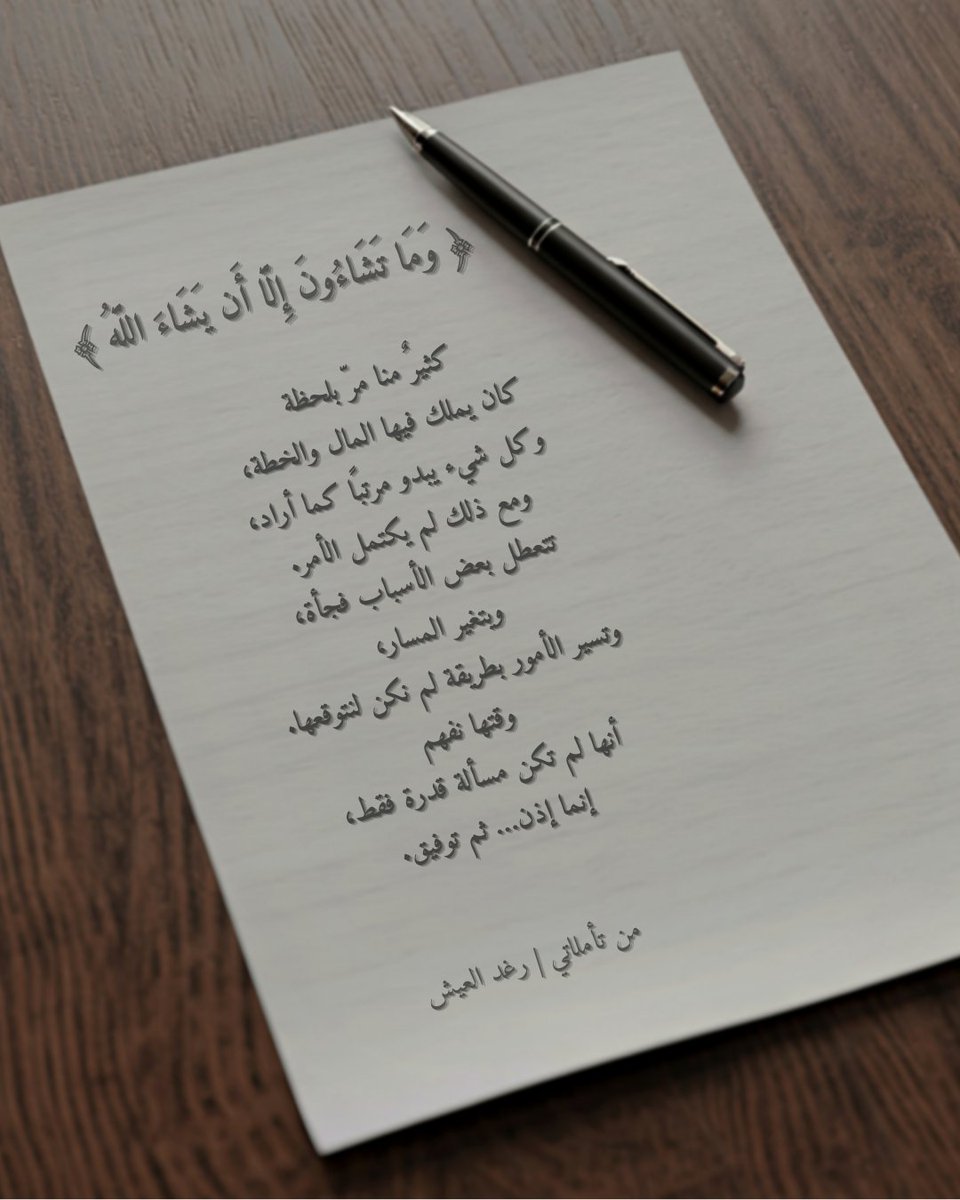 ﴿ وَمَا تَشَاءُونَ إِلَّا أَن يَشَاءَ اللَّهُ ﴾
كثيرٌ منا مرّ بلحظة
كان يملك فيها المال والخطة،
وكل شيء يبدو مرتباً كما أراد،
ومع ذلك لم يكتمل الأمر.
تتعطل بعض الأسباب فجأة،
ويتغير المسار،
وتسير الأمور بطريقة لم نكن لنتوقعها.
وقتها نفهم
أنها لم تكن مسألة قدرة فقط،
إنما إذن... ثم توفيق.
من تأملاتي | رغد العيش